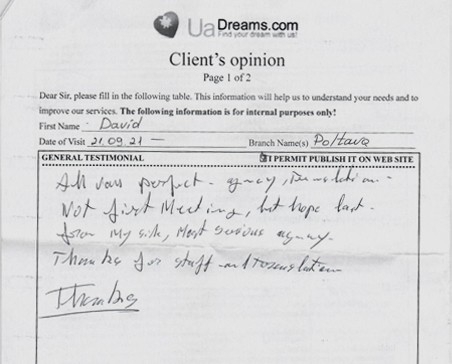 UaDreams.com
Find your dream with us!
Client's opinion
Page 1 of 2
Dear Sir, please fill in the following table. This information will help us to understand your needs and to
improve our services. The following information is for internal purposes only!
First Name David
Date of Visit 21.09.21 — Branch Name(s) Poltava
GENERAL TESTIMONIAL I PERMIT PUBLISH IT ON WEB SITE
All was perfect - agency, translation -
Not first Meeting, but hope last.
from My side, Most serious agency.
Thanks for staff and translation
Thanks